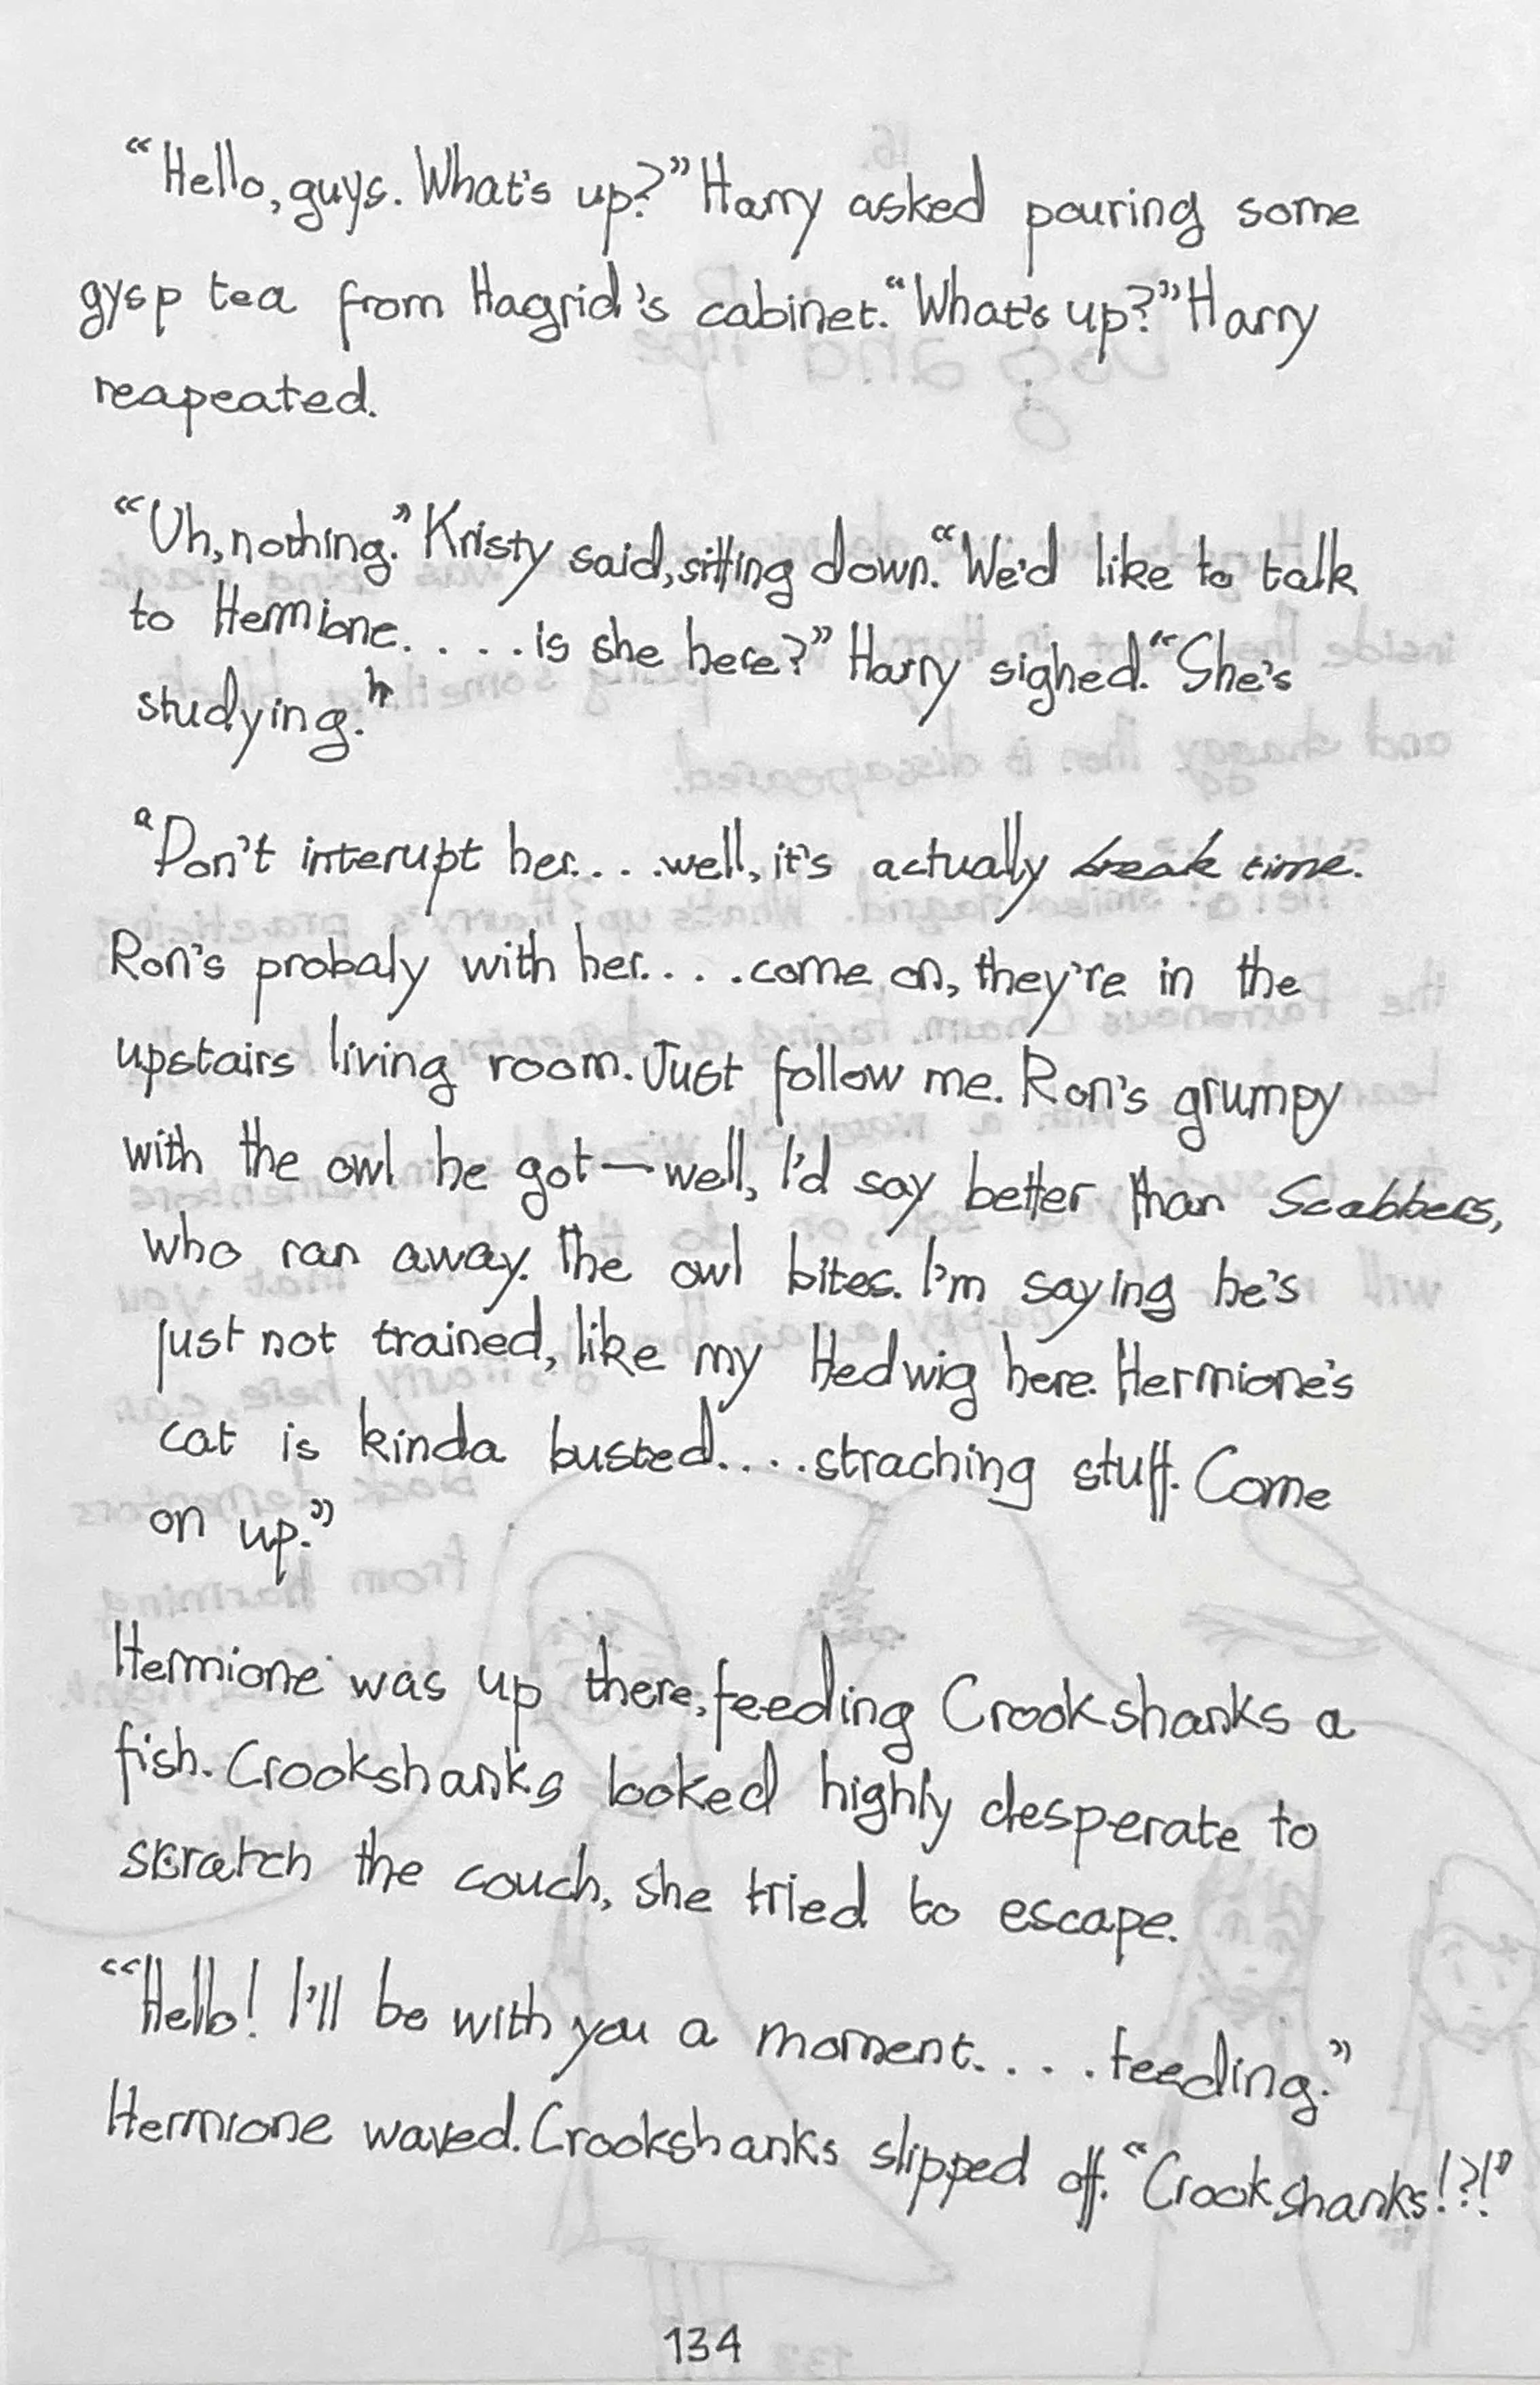 “Hello, guys. What's up?” Harry asked pouring some
gysp tea from Hagrid's cabinet. “What's up?” Harry
reapeated.
“Uh, nothing.” Kristy said, sitting down. “We'd like to talk
to Hermione.....is she here?” Harry sighed. “She's
studying.”
“Don't interupt her.....well, it's actually break time.
Ron's probaly with her.....come on, they're in the
upstairs living room. Just follow me. Ron's grumpy
with the owl he got—well, I'd say better than Scabbers,
who ran away. The owl bites. I'm saying he's
just not trained, like my Hedwig here. Hermione's
cat is kinda busted.....straching stuff. Come
on up.”
Hermione was up there, feeding Crookshanks a
fish. Crookshanks looked highly desperate to
scratch the couch, she tried to escape.
“Hello! I'll be with you a moment.....feeding.”
Hermione waved. Crookshanks slipped off. “Crookshanks!?!”
134